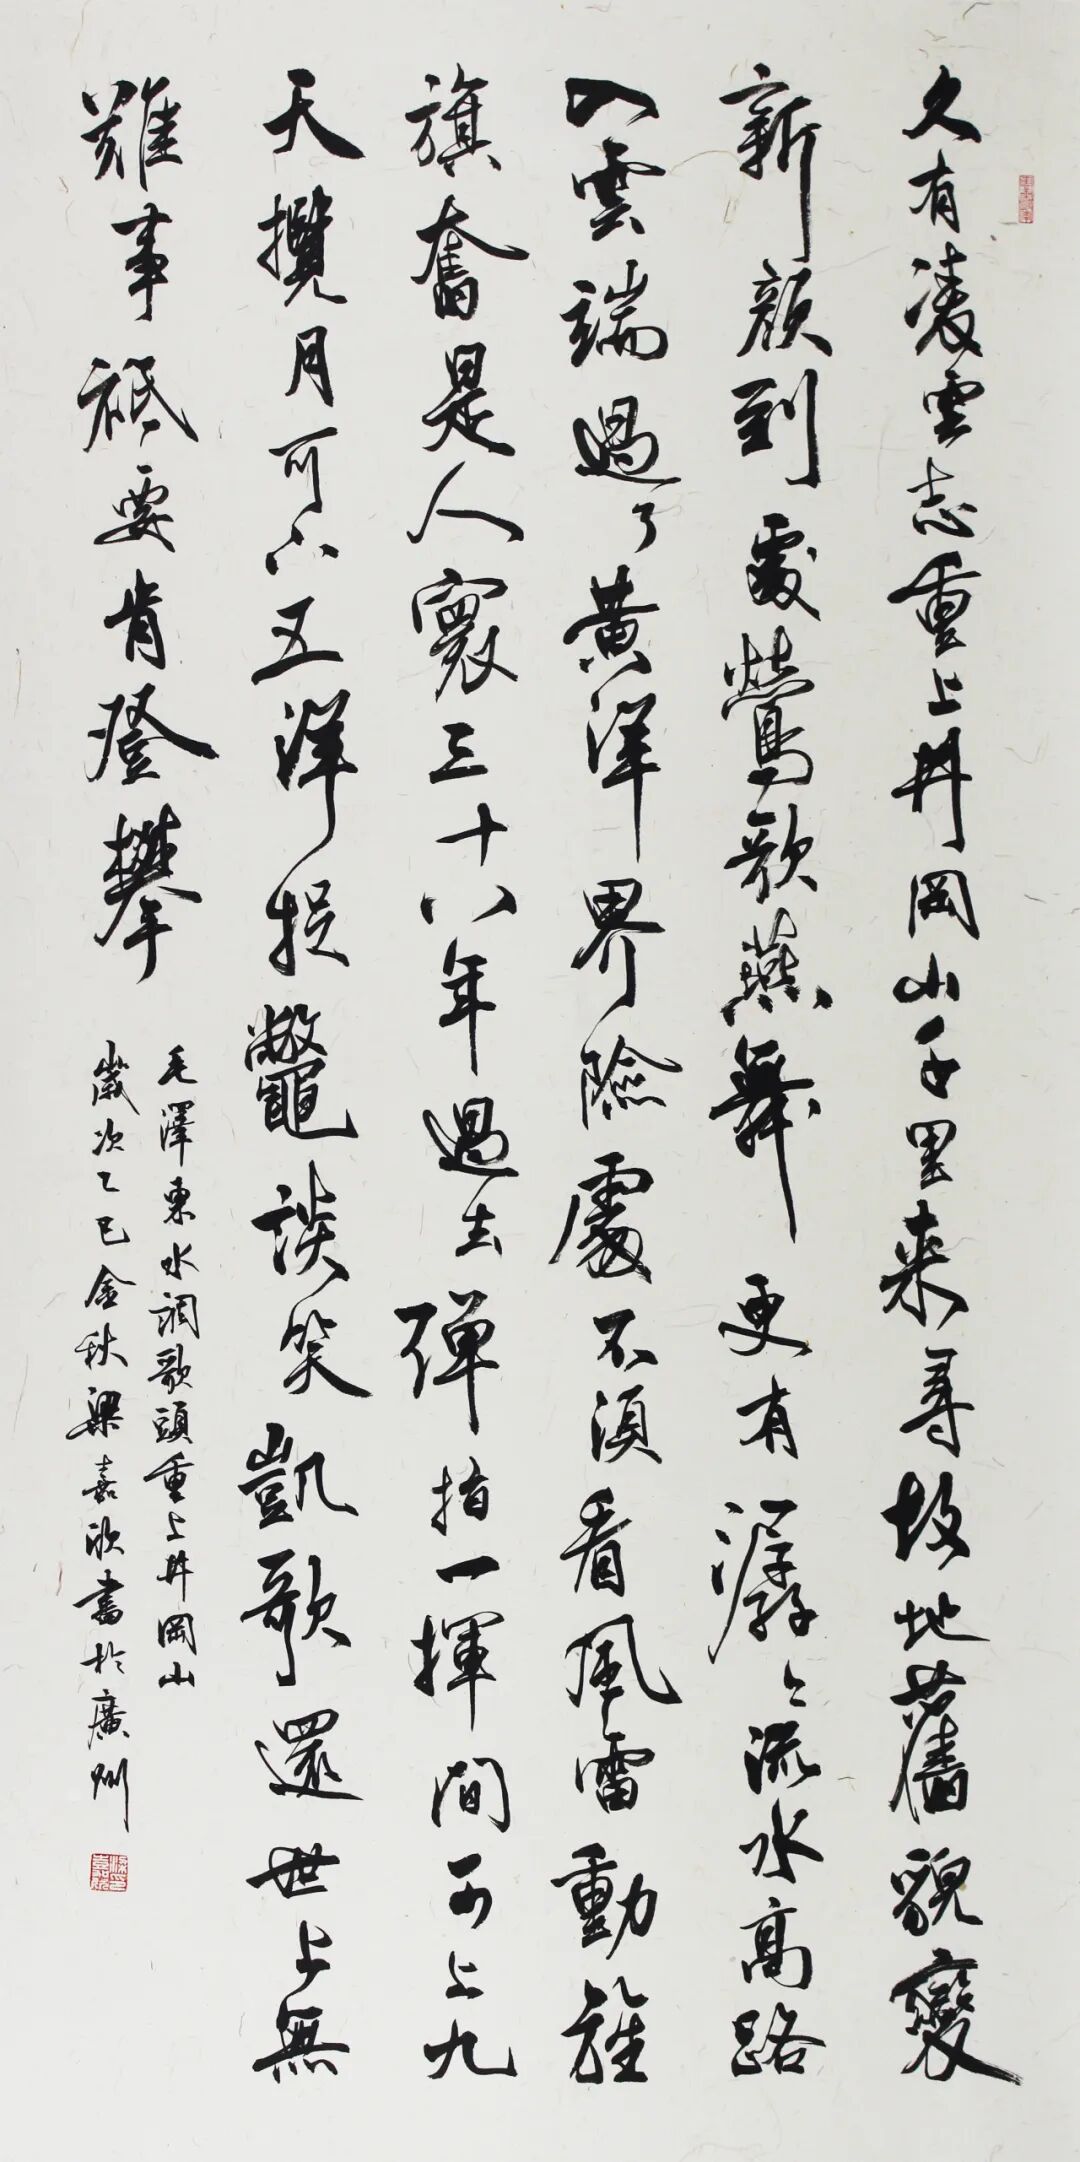 久有淩雲志重上井岡山千里来尋故地舊貌變
新顔到處鶯歌燕舞更有潺々流水高路
入雲端過了黃洋界險處不須看風雷動旌
旗奮是人寰三十八年過去弹指一揮間可上九
天攬月可下五洋捉鼈談笑凱歌還世上無
難事祇要肯登攀
毛澤東水調歌頭重上井岡山
歲次乙巳金秋梁嘉欣書於廣州